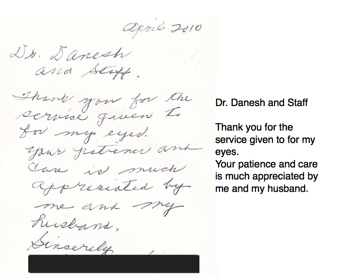 April 2010
Dr. Danesh
and Staff.
Thank you for the
service given to
for my eyes.
Your patience and
care is much
appreciated by
me and my
husband.
Sincerely
Dr. Danesh and Staff
Thank you for the
service given to for my
eyes.
Your patience and care
is much appreciated by
me and my husband.